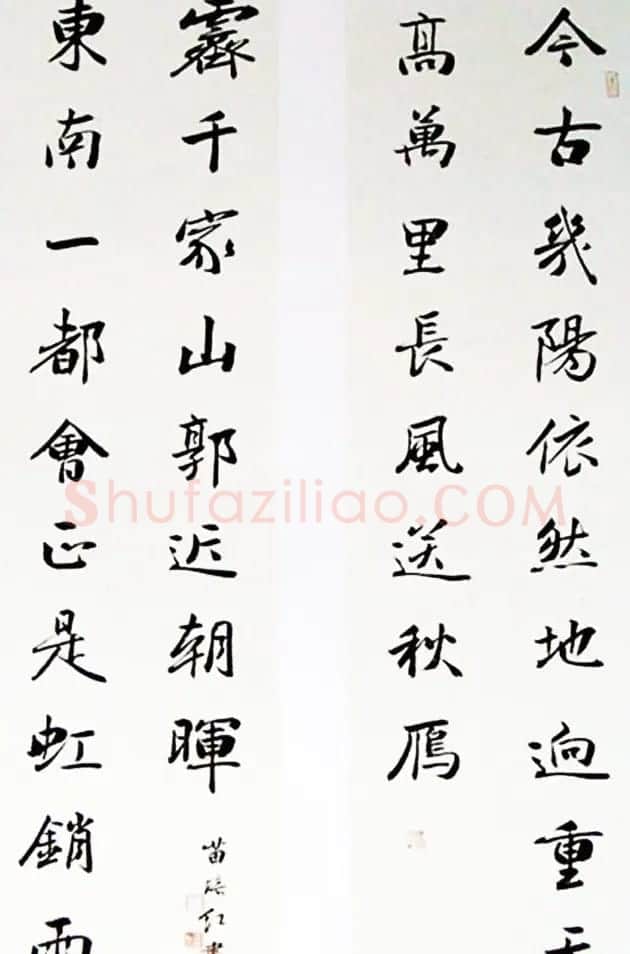 今古幾陽依然地迥重
髙萬里長風送秋鴈
東南一都會正是虹銷
霽千家山郭近朝暉
苗培红
Shufaziliao.COM